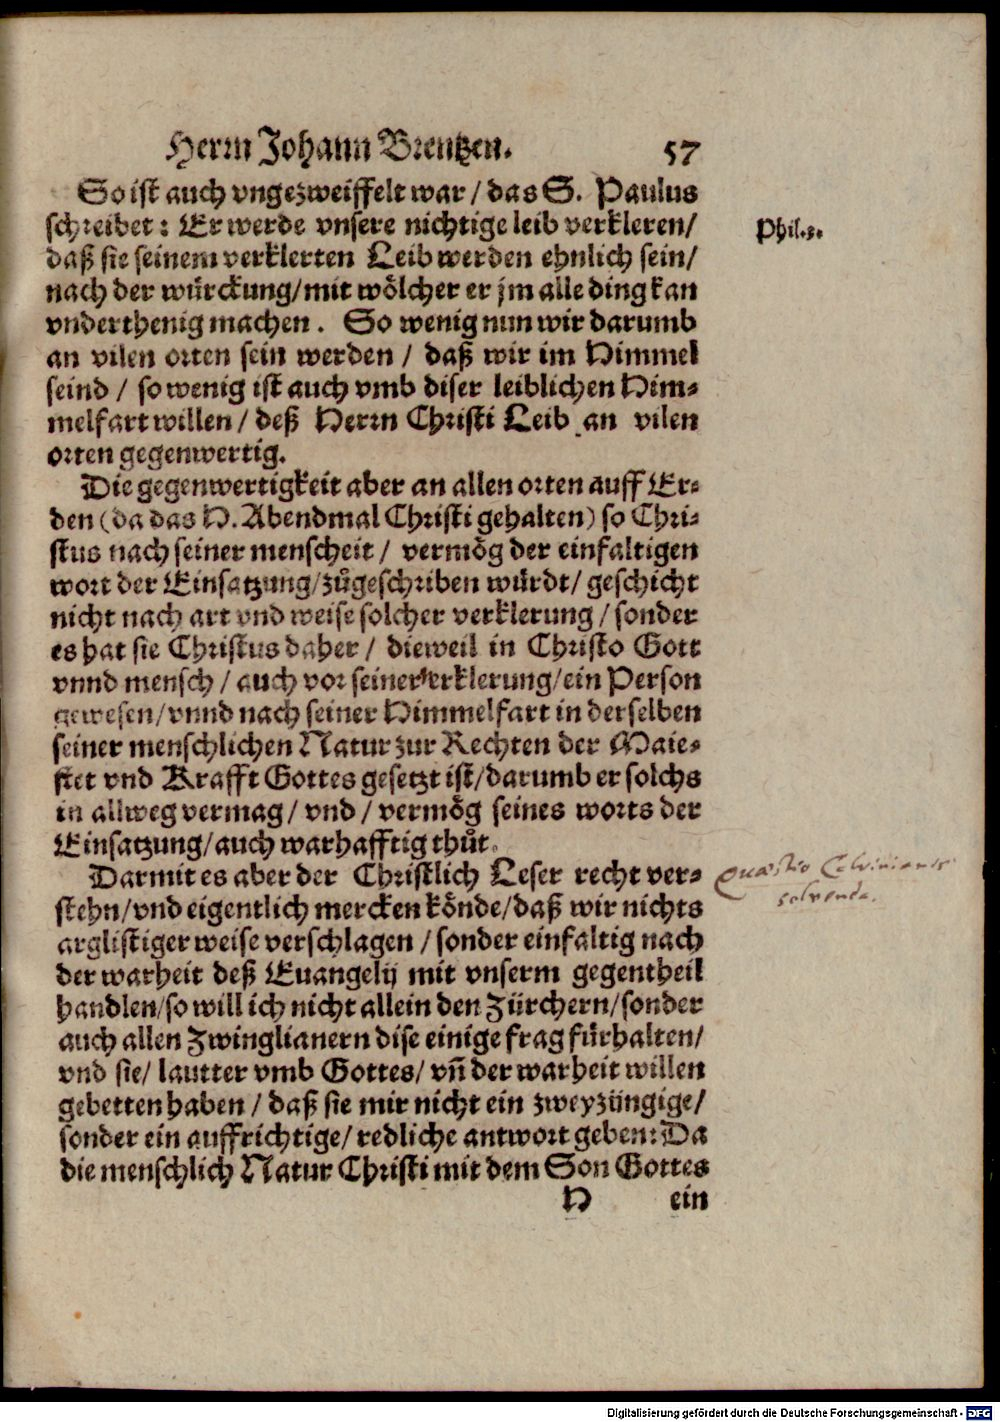 Herrn Johann Brentzen. 57
So ist auch vngezweiffelt war / das S. Paulus
schreibet: Er werde vnsere nichtige leib verkleren/
Phil.3.
daß sie seinem verklerten Leib werden ehnlich sein/
nach der würckung/mit wölcher er jm alle ding kan
vnderthenig machen. So wenig nun wir darumb
an vilen orten sein werden / daß wir im Himmel
seind / so wenig ist auch vmb diser leiblichen Him-
melfart willen / deß Herrn Christi Leib an vilen
orten gegenwertig.
Die gegenwertigkeit aber an allen orten auff Er-
den (da das H. Abendmal Christi gehalten) so Chri-
stus nach seiner menscheit / vermög der einfaltigen
wort der Einsatzung/zůgeschriben würdt/ geschicht
nicht nach art vnd weise solcher verklerung / sonder
es hat sie Christus daher / dieweil in Christo Gott
vnnd mensch / auch vor seiner verklerung/ein Person
gewesen/vnnd nach seiner Himmelfart in derselben
seiner menschlichen Natur zur Rechten der Maie-
stet vnd Krafft Gottes gesetzt ist/darumb er solchs
in allweg vermag/ vnd / vermög seines worts der
Einsatzung/auch warhafftig thůt.
Darmit es aber der Christlich Leser recht ver-
Quaestio Calvinianis
stehn/vnd eigentlich mercken könde/daß wir nichts
solvenda.
arglistiger weise verschlagen / sonder einfaltig nach
der warheit deß Euangelij mit vnserm gegentheil
handlen/so will ich nicht allein den Zürchern/sonder
auch allen Zwinglianern dise einige frag fürhalten/
vnd sie/ lautter vmb Gottes/ vñ der warheit willen
gebetten haben / daß sie mir nicht ein zweyzüngige/
sonder ein auffrichtige/ redliche antwort geben: Da
die menschlich Natur Christi mit dem Son Gottes
H ein
Digitalisierung gefördert durch die Deutsche Forschungsgemeinschaft - DFG